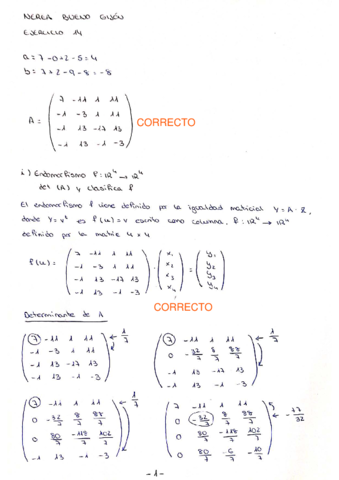 NEREA BUENO GIJÓN
EJERCICIO 14
a = 7 - 0 + 2 - 5 = 4
b = 7 + 2 - 9 - 8 = -8
7 -11 1 11
-1 -3 1 11
A = CORRECTO
-1 13 -17 13
-1 13 -1 -3
i) Endomorfismo f: ℝ⁴ → ℝ⁴
det (A) y clasifica f
El endomorfismo f viene definido por la igualdad matricial Y = A ·
donde Y = es f(u) = v escrito como columna. f: ℝ⁴ → ℝ⁴
definido por la matriz 4 x 4
7 -11 1 11 x₁ y₁
-1 -3 1 11 x₂ y₂
f(u) = · =
-1 13 -17 13 x₃ y₃
-1 13 -1 -3 x₄ y₄
CORRECTO
Determinante de A
7 -11 1 11 1/7
-1 -3 1 11
-1 13 -17 13
-1 13 -1 -3
7 -11 1 11 1/7
0 -32/7 8/7 88/7
-1 13 -17 13
-1 13 -1 -3
7 -11 1 11 1/7
0 -32/7 8/7 88/7
0 80/7 -118/7 102/7
-1 13 -1 -3
7 -11 1 11
0 -32/7 8/7 88/7
0 80/7 -118/7 102/7
0 80/7 -6/7 -10/7
-1-